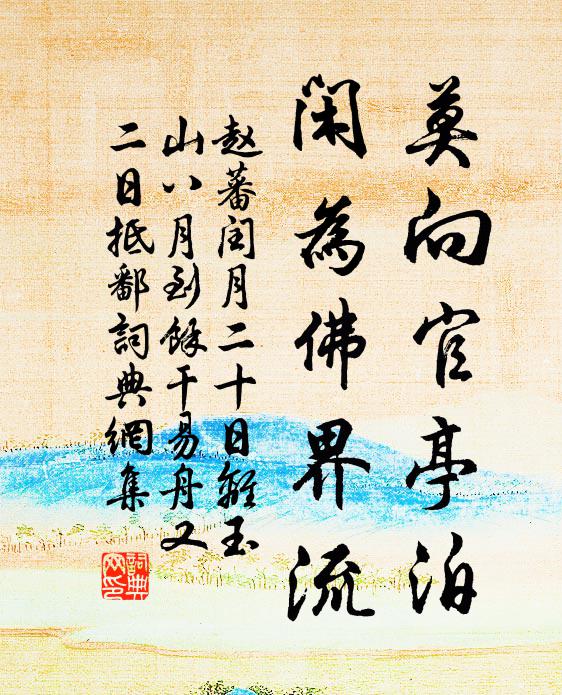 莫向官亭泊
閑為佛界流
赵蕃闰月二十日離玉
山八月到餘干易舟又
二日抵鄱詞典網集
詞典
网印